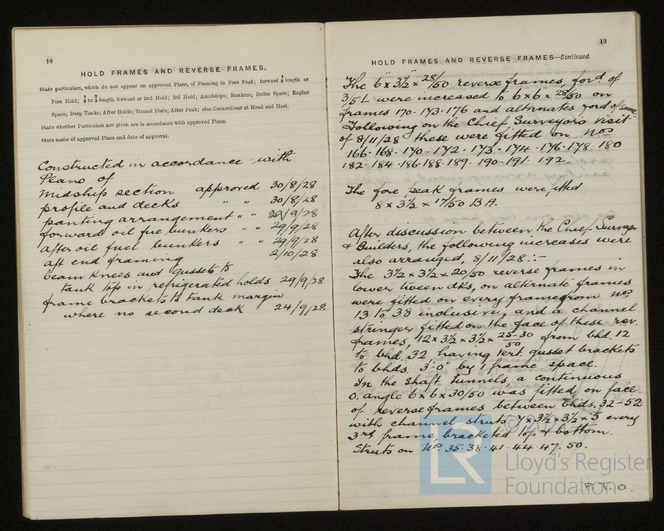 18
HOLD FRAMES AND REVERSE FRAMES.
State particulars, which do not appear on approved Plans, of Framing in Fore Peak; forward length or
Fore Hold; to length forward or 2nd Hold; 3rd Hold; Amidships; Bunkers; Boiler Space; Engine
Space; Deep Tanks; After Holds; Tunnel Flats; After Peak; also Connections at Head and Heel.
State whether Particulars not given are in accordance with approved Plans.
State name of approved Plans and date of approval.
Constructed in accordance with
Plans of
Midship section approved 30/8/28
profile and decks " " 30/8/28
panting arrangement " " 29/9/28
forward oil fuel bunkers " " 29/9/28
after oil fuel bunkers " " 29/9/28
aft end framing 2/10/28
beam knees and gussets to
tank top in refrigerated holds 29/9/28
frame brackets to tank margin
where no second deck 24/9/28
19
HOLD FRAMES AND REVERSE FRAMES—Continued.
The 6" x 3½" x 28/50 reverse frames, for'd of
3/5 L were increased to 6 x 6 x 28/50 on
frames 170. 173. 176 and alternates for'd of
Following on the Chief Surveyors visit
of 8/11/28 these were fitted on Nos
166. 168. 170. 172. 173. 174. 176. 178. 180
182. 184. 186. 188. 189. 190. 191. 192.
The fore peak frames were fitted
8 x 3½ x 17/50 B.A.
After discussion between the Chief Surveyor
& Builders, the following increases were
also arranged, 8/11/28:-
The 3½ x 3½ x 20/50 reverse frames in
lower tween dks, on alternate frames
were fitted on every frame from Nos
13 to 38 inclusive, and a channel
stringer fitted on the face of these rev.
frames, 12 x 3½ x 3½ x 25-30/50 from bhd. 12
to bhd. 32 having vert gusset brackets
to bhds 3'-0" by 1 frame space.
In the shaft tunnels, a continuous
O. angle 6 x 6 x 30/50 was fitted on face
of reverse frames between bhds. 32-52
with channel struts 7 x 3½ x 3½ x 5 every
3rd frame, bracketed top & bottom.
Struts on Nos 35. 38. 41. 44. 47. 50.
P.T.O.
LR
Lloyd's Register
Foundation